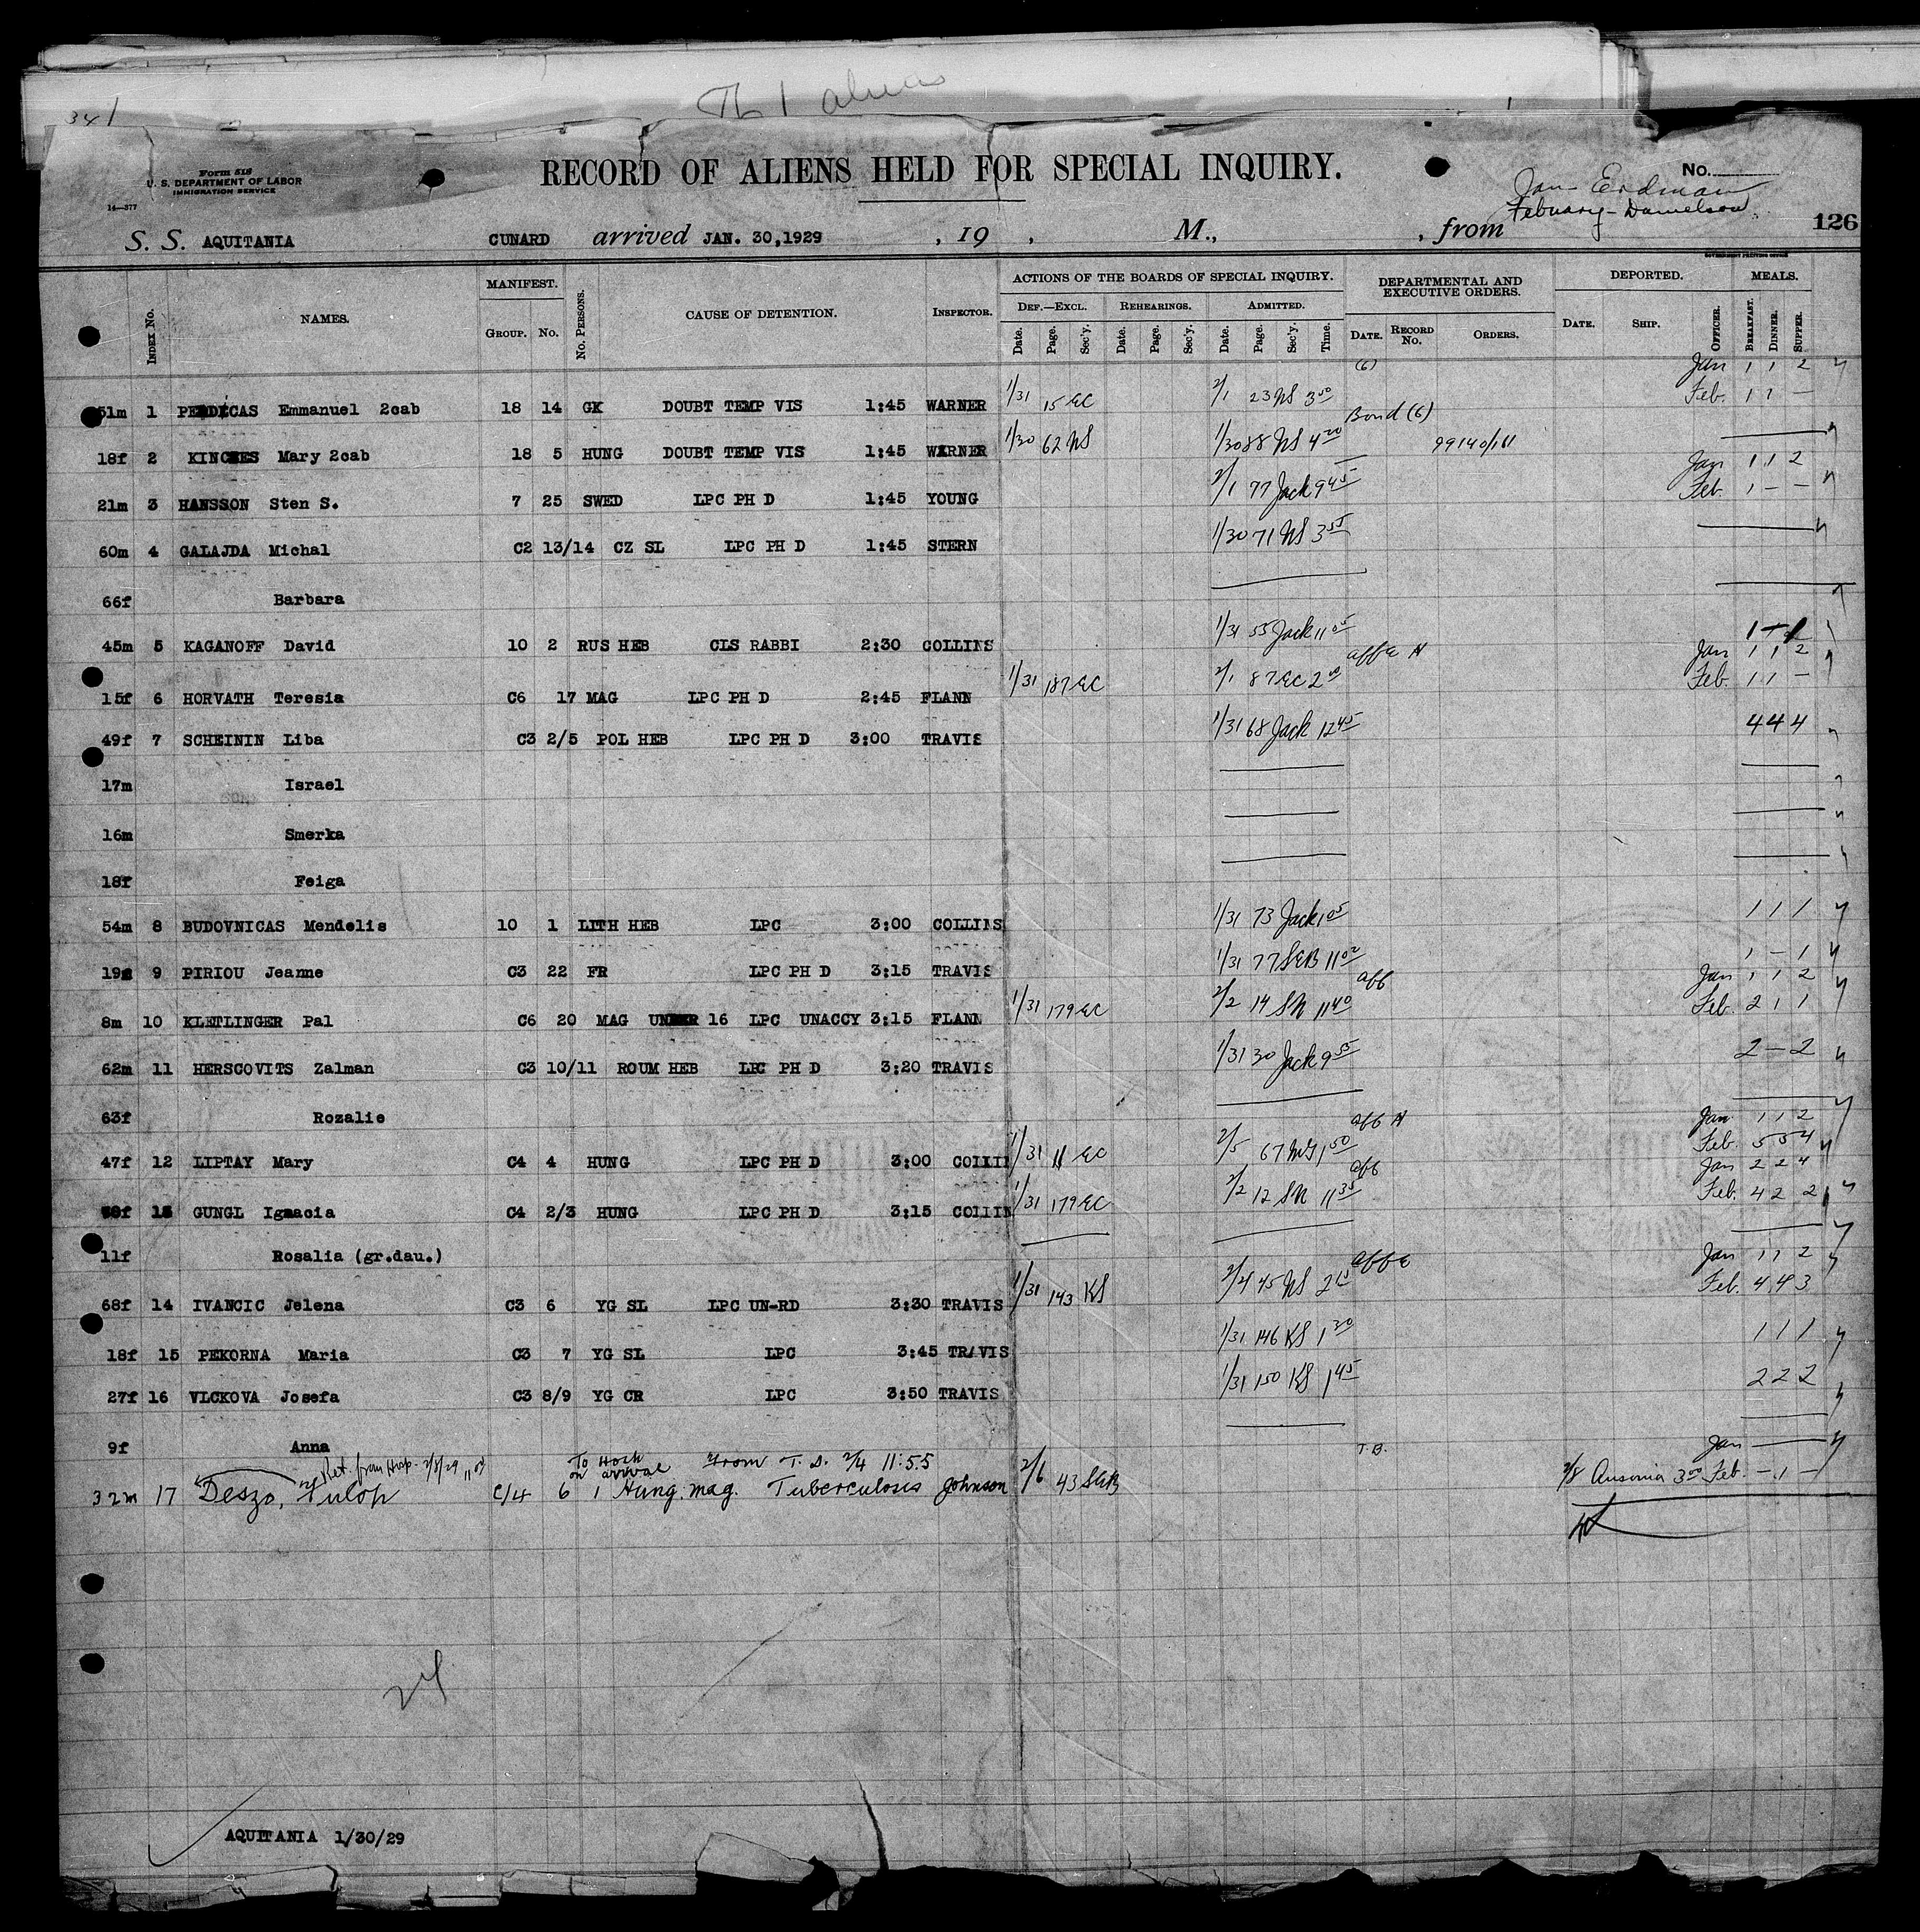 341
Form 518
U. S. DEPARTMENT OF LABOR
IMMIGRATION SERVICE
14—377
RECORD OF ALIENS HELD FOR SPECIAL INQUIRY.
No.
Jan - Erdman
Febuary - Danielson
126
S. S. AQUITANIA CUNARD arrived JAN. 30,1929 , 19 , M., , from
GOVERNMENT PRINTING OFFICE
INDEX No. NAMES. MANIFEST. GROUP. No. No. PERSONS. CAUSE OF DETENTION. INSPECTOR. ACTIONS OF THE BOARDS OF SPECIAL INQUIRY. DEF.—EXCL. Date. Page. Sec'y. REHEARINGS. Date. Page. Sec'y. ADMITTED. Date. Page. Sec'y. Time. DEPARTMENTAL AND EXECUTIVE ORDERS. DATE. RECORD No. ORDERS. DEPORTED. DATE. SHIP. OFFICER. MEALS. BREAKFAST. DINNER. SUPPER.
(6) Jan 1 1 2
51m 1 Emmanuel 2cab 18 14 GK DOUBT TEMP VIS 1:45 WARNER 1/31 15 EC 2/1 23 NS 3 00 Feb. 1 1 -
Bond (6)
18f 2 Mary 2cab 18 5 HUNG DOUBT TEMP VIS 1:45 WARNER 1/30 62 NS 1/30 88 NS 4 20 99140/161
Jan 1 1 2
21m 3 HANSSON Sten S. 7 25 SWED LPC PH D 1:45 YOUNG 2/1 77 Jack 9 45 Feb. 1 - -
60m 4 GALAJDA Michal C2 13/14 CZ SL LPC PH D 1:45 STERN 1/30 71 NS 3 55
66f Barbara
45m 5 KAGANOFF David 10 2 RUS HEB CLS RABBI 2:30 COLLINS 1/31 55 Jack 11 05 1 - 1
Jan 1 1 2
15f 6 HORVATH Teresia C6 17 MAG LPC PH D 2:45 FLANN 1/31 187 EC 2/1 87 EC 2 00 Feb. 1 1 -
49f 7 SCHEININ Liba C3 2/5 POL HEB LPC PH D 3:00 TRAVIS 1/31 68 Jack 12 45 4 4 4
17m Israel
16m Smerka
18f Feiga
54m 8 BUDOVNICAS Mendelis 10 1 LITH HEB LPC 3:00 COLLINS 1/31 73 Jack 1 05 1 1 1
19f 9 PIRIOU Jeanne C3 22 FR LPC PH D 3:15 TRAVIS 1/31 77 SEB 11 02 1 - 1
aff Jan 1 1 2
8m 10 KLETLINGER Pal C6 20 MAG UNDER 16 LPC UNACCY 3:15 FLANN 1/31 179 EC 2/2 14 SN 11 40 Feb. 2 1 1
62m 11 HERSCOVITS Zalman C3 10/11 ROUM HEB LPC PH D 3:20 TRAVIS 1/31 30 Jack 9 55 2 - 2
63f Rozalie
aff H Jan 1 1 2
47f 12 LIPTAY Mary C4 4 HUNG LPC PH D 3:00 COLLIN 1/31 11 EC 2/5 67 1 50 Feb. 5 5 4
aff Jan 2 2 4
13 GUNGL Ignacia C4 2/3 HUNG LPC PH D 3:15 COLLIN 1/31 179 EC 2/2 12 SN 11 35 Feb. 4 2 2
11f Rosalia (gr.dau.)
Jan 1 1 2
68f 14 IVANCIC Jelena C3 6 YG SL LPC UN-RD 3:30 TRAVIS 1/31 143 KS 2/4 45 NS 2 15 Feb. 4 4 3
18f 15 PEKORNA Maria C3 7 YG SL LPC 3:45 TRAVIS 1/31 146 KS 1 30 1 1 1
27f 16 VLCKOVA Josefa C3 8/9 YG CR LPC 3:50 TRAVIS 1/31 150 KS 1 45 2 2 2
9f Anna
T.B. Jan
Ret. from Hosp. 2/8/29 To Hosp on arrival From T. D. 2/4 11:55
32m 17 Deszo, Fulop C/4 6 1 Hung. mag. Tuberculosis Johnson 2/6 43 SEB 2/8 Ausonia 3 00 Feb. - 1 -
24
AQUITANIA 1/30/29